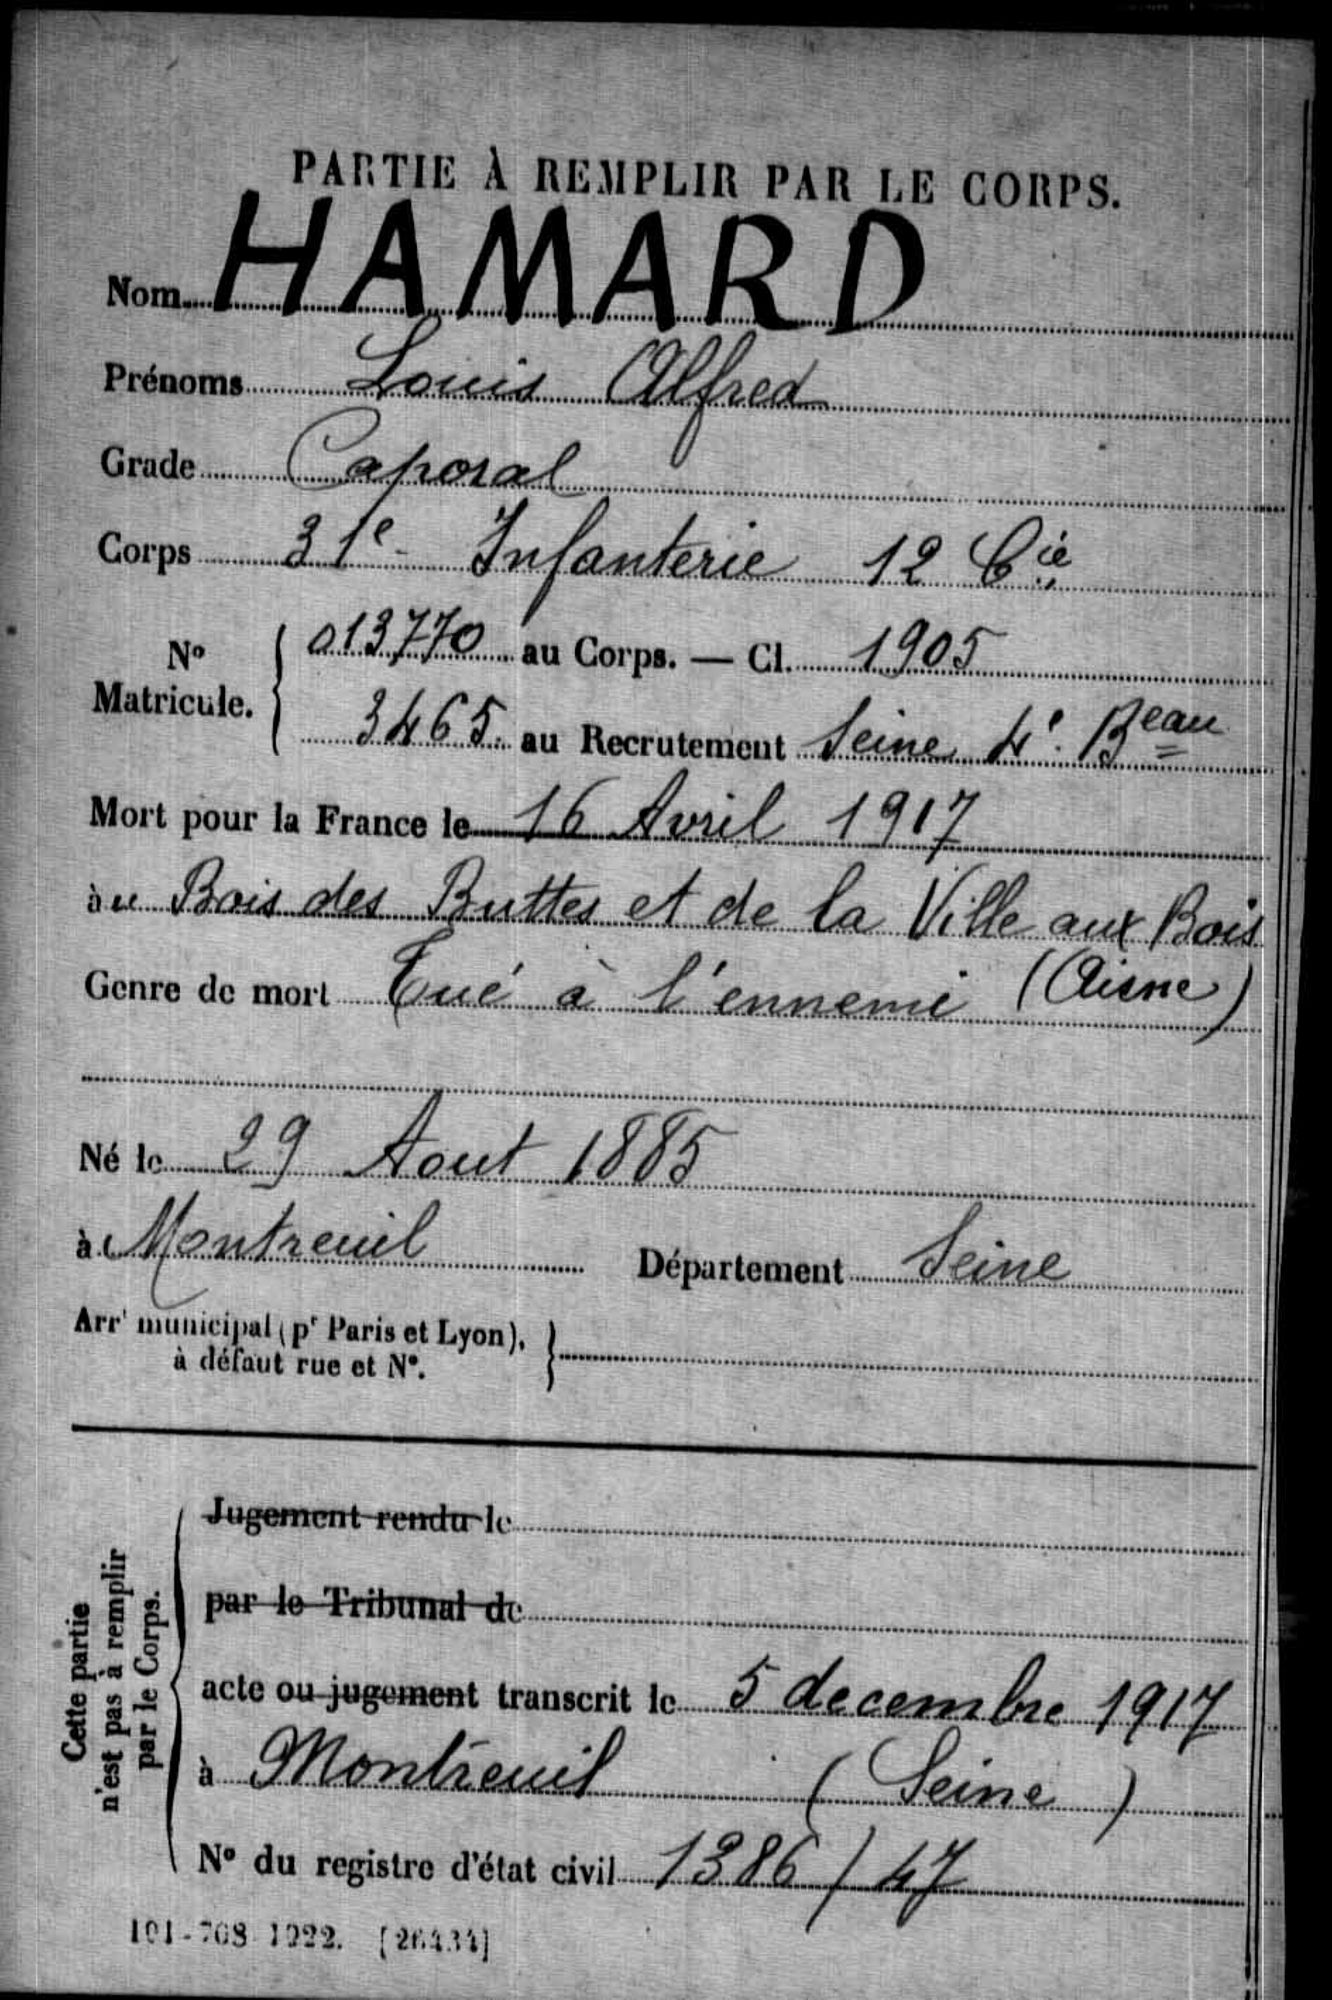 PARTIE À REMPLIR PAR LE CORPS.
Nom HAMARD
Prénoms Louis Alfred
Grade Caporal
Corps 31e Infanterie 12 Cie
No Matricule. { 013770 au Corps. — Cl. 1905
3465 au Recrutement Seine 4e Beau
Mort pour la France le 16 Avril 1917
àu Bois des Buttes et de la Ville aux Bois
Genre de mort Tué à l'ennemi (Aisne)
Né le 29 Aout 1885
à Montreuil Département Seine
Arrt municipal (pr Paris et Lyon), à défaut rue et No. }
Cette partie n'est pas à remplir par le Corps.
Jugement rendu le
par le Tribunal de
acte ou jugement transcrit le 5 decembre 1917
à Montreuil (Seine)
No du registre d'état civil 1386/47
101-708-1922. [26434]